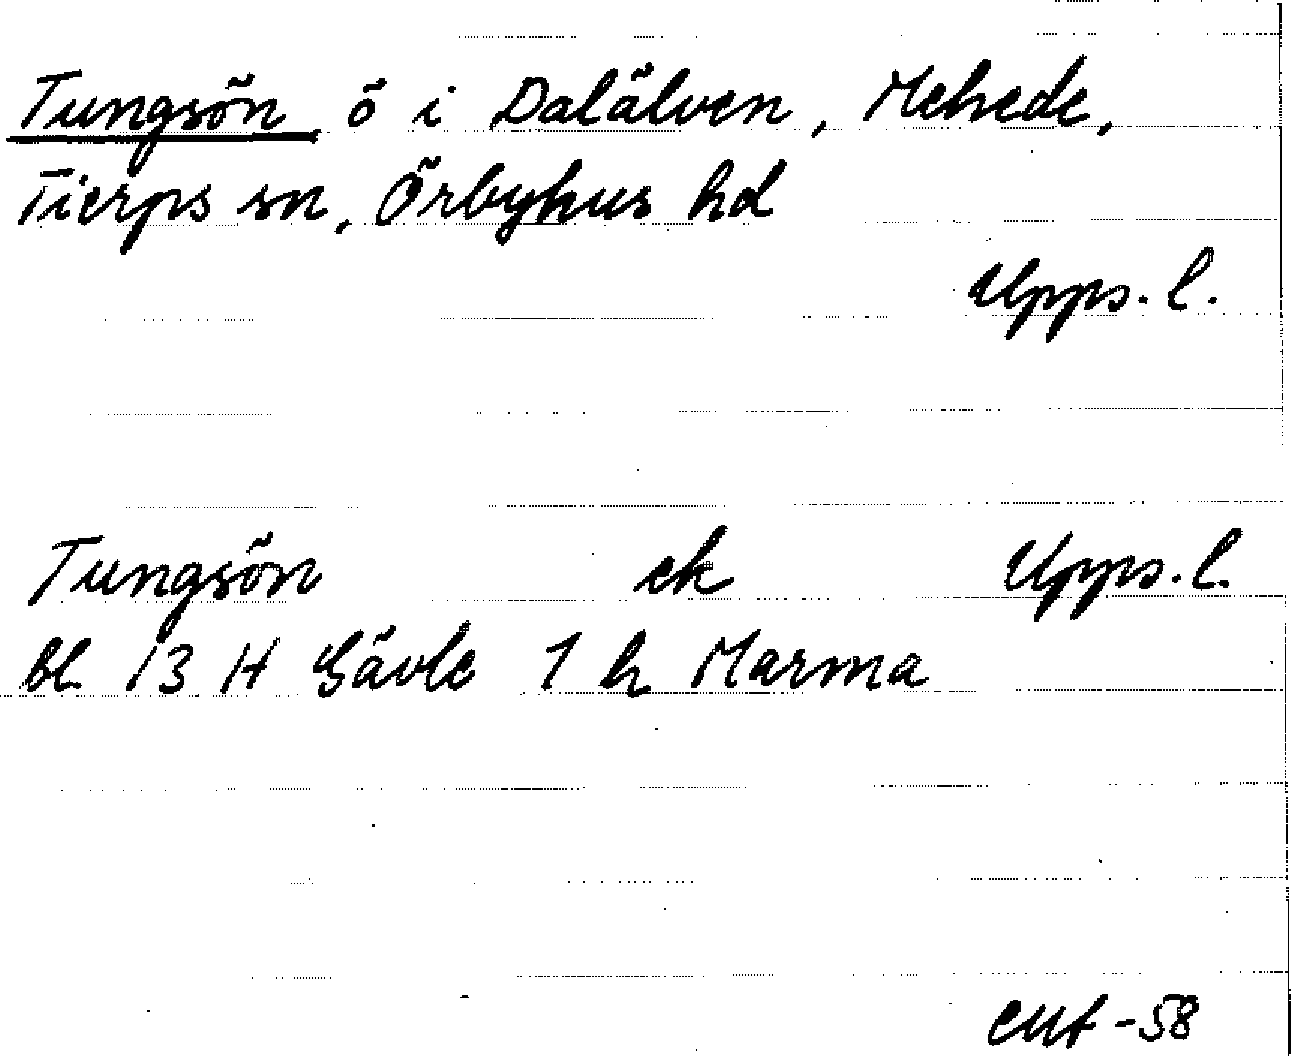 Tungsön ö i Dalälven, Mehede,
Tierps sn, Örbyhus hd
Upps. l.
Tungsön ek Upps. l.
bl. 13 H Gävle 1 h Marma
-58